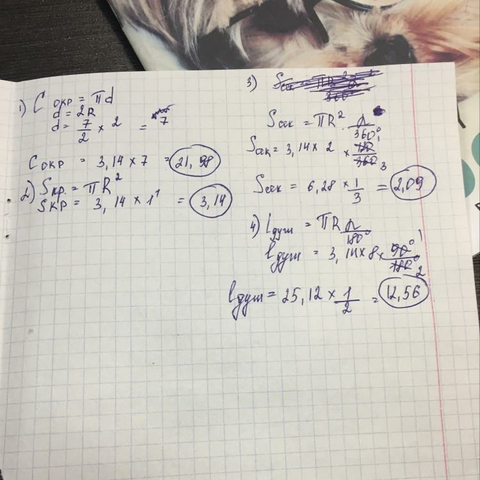 1) C окр = πd
d = 2R
d = 7/2 × 2 = 7
C окр = 3,14 × 7 = 21,98
2) Sкр. = πR²
Sкр = 3,14 × 1¹ = 3,14
3)
Sсек = πR² n/360°
Sсек = 3,14 × 2 × 120/360 3
Sсек = 6,28 × 1/3 = 2,09
4) lдуги = πR n/180°
lдуги = 3,14 × 8 × 90° 1/180° 2
lдуги = 25,12 × 1/2 = 12,56